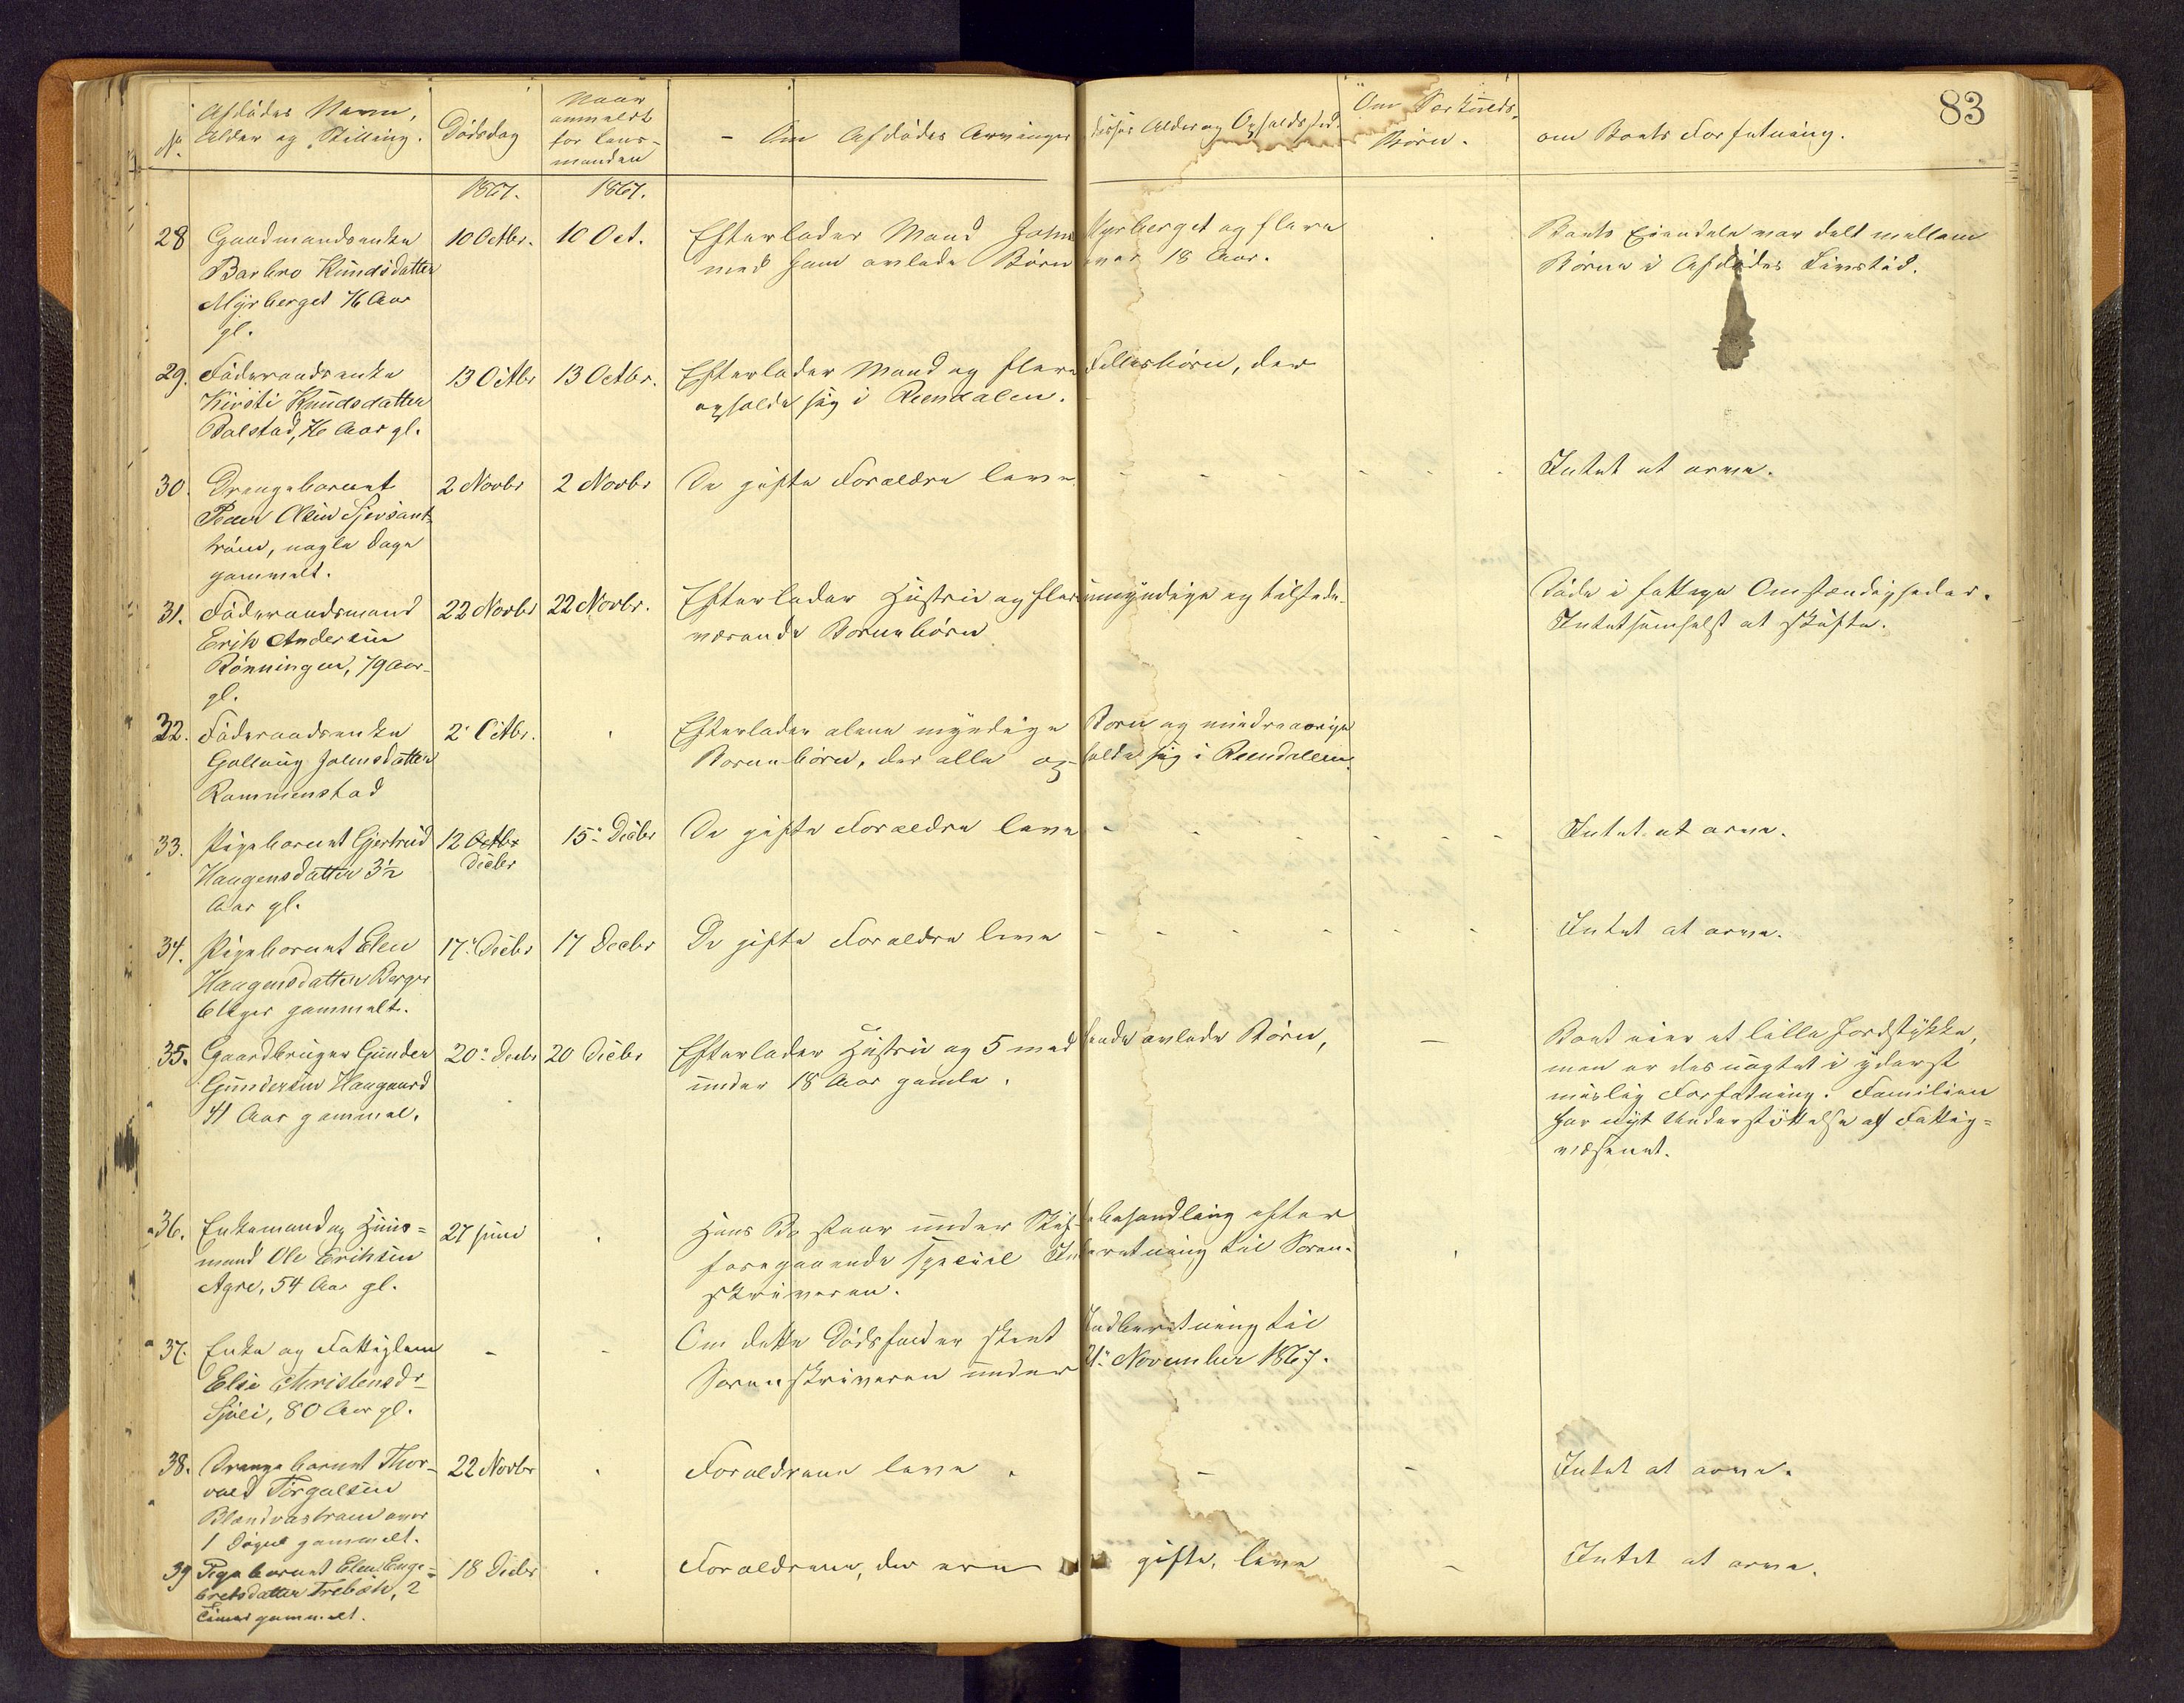 83
No.
Afdødes Navn,
Alder og Stilling.
Dødsdag
Naar
anmeldt
for Lens-
manden
- Om Afdødes Arvinger, disses Alder og Opholdssted.
Om Særkulds-
Børn.
om Boets Forfatning.
1867.
1867.
28
Gaardmandsenke
Barbro Knudsdatter
Myrberget 76 Aar
gl.
10 Octbr.
10 Oct.
Efterlader Mand John Myrberget og flere
med ham avlede Børn over 18 Aar.
Boets Eiendele var delt mellem
Børne i Afdødes Livstid.
29.
Føderaadsenke
Kirsti Knudsdatter
Bolstad, 76 Aar gl.
13 Octbr
13 Octbr.
Efterlader Mand og flere Fællesbørn, der
opholde sig i Rendalen.
30.
Drengebarnet
Peder Olsen
nogle Dage
gammelt.
2 Novbr
2 Novbr
De gifte Forældre leve
- - - - - -
Intet at arve.
31.
Føderaadsmand
Erik Andersen
Rønningen, 79 Aar
gl.
22 Novbr
22 Novbr.
Efterlader Hustru og flere umyndige og tilstede-
værende Børnebørn
Døde i fattige Omstændigheder.
Intetsomhelst at skifte.
32.
Føderaadsenke
Golloug Johnsdatter
Rommenstad
2 Octbr.
Efterlader alene myndige Børn og mindreaarige
Børnebørn, der alle opholde sig i Rendalen.
33.
Pigebarnet Gjertrud
Haagensdatter 3½
Aar gl.
12 Octbr
Decbr
15 Decbr
De gifte Forældre leve
- - - - - -
Intet at arve.
34.
Pigebarnet Elen
Haagensdatter Berger
6 Uger gammelt.
17 Decbr
17 Decbr
De gifte Forældre leve
- - - - - -
Intet at arve.
35.
Gaardbruger Gunder
Gundersen Haugaard
41 Aar gammel.
20 Decbr
20 Decbr
Efterlader Hustru og 5 med hende avlede Børn,
under 18 Aar gamle.
-
Boet eier et lille Jordstykke,
men er desuagtet i yderst
mislig Forfatning. Familien
har nydt Understøttelse af Fattig-
væsenet.
36.
Enkemand og Huus-
mand Ole Eriksen
Agre, 54 Aar gl.
27 Juni
Hans Bo staar under Skiftebehandling efter
foregaaende special Indberetning til Soren-
skriveren.
37.
Enke og Fattiglem
Elie Christensdr
Sjøli, 80 Aar gl.
-
-
Om dette Dødsfald er skeet Indberetning til
Sorenskriveren under 21 November 1867.
38.
Drengebarnet Thor-
vald Torgalsen
over
1 Døgn gammelt.
22 Novbr
Forældrene leve.
-
-
Intet at arve.
39
Pigebarnet Elen Enge-
bretsdatter Trebæk, 2
Timer gammelt.
18 Decbr
Forældrene, der ere gifte, leve
-
Intet at arve.